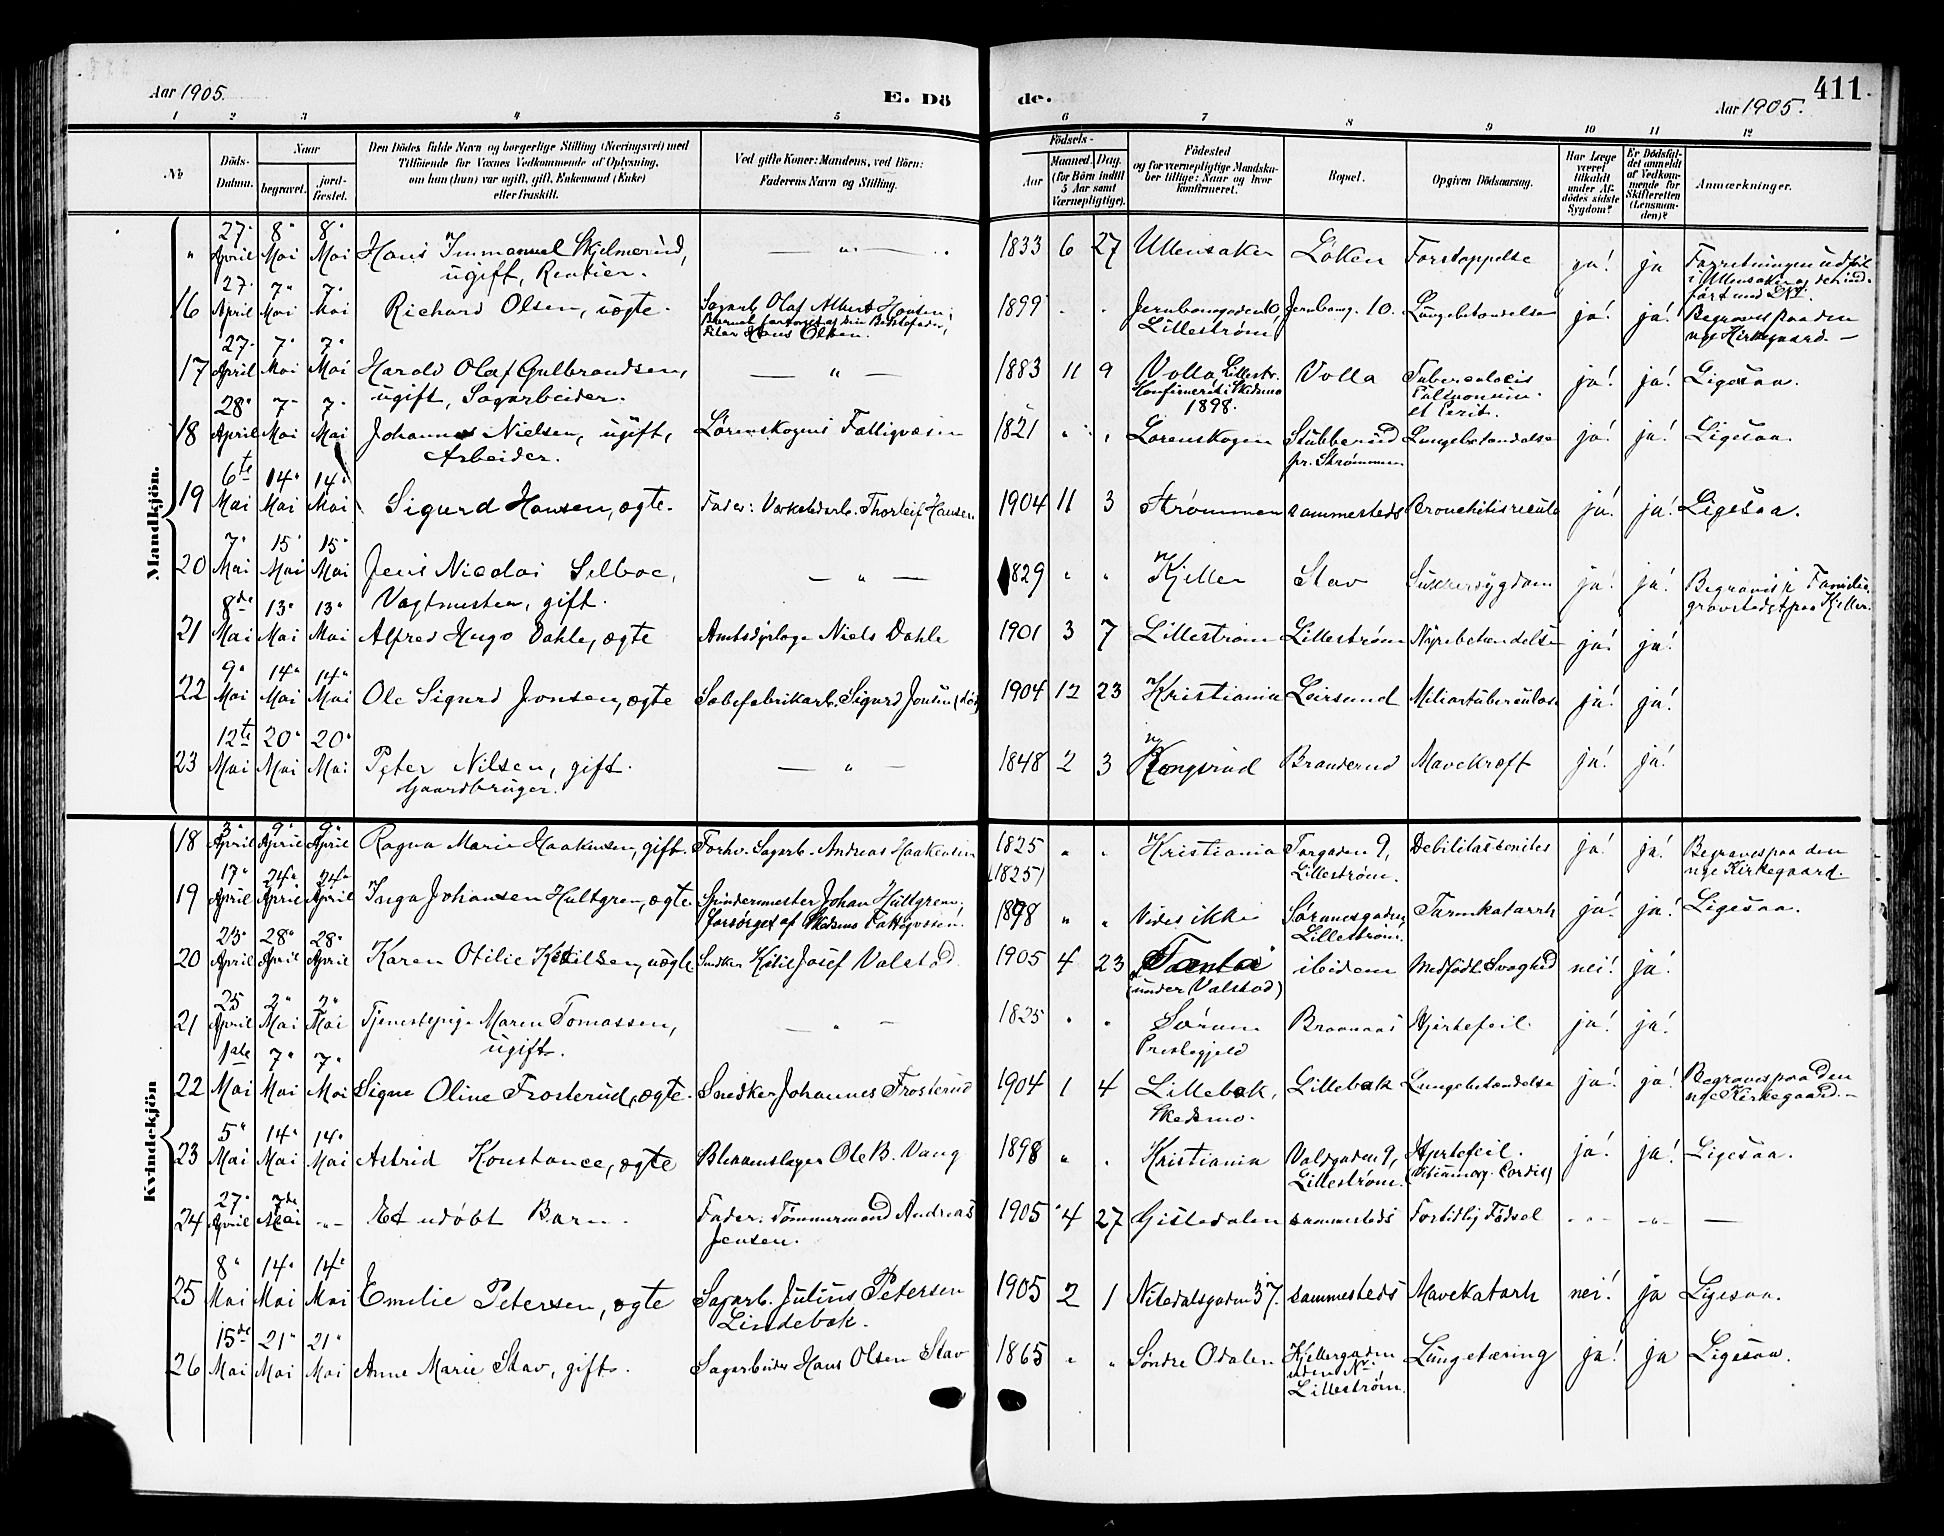 Aar 1905. E. Dö de. Aar 1905. 411.
1 2 3 4 5 6 7 8 9 10 11 12
No
Döds-Datum.
Naar begravet. jordfæstet.
Den Dödes fulde Navn og borgerlige Stilling (Næringsvei) med
Tilföiende for Voxnes Vedkommende af Oplysning,
om han (hun) var ugift, gift, Enkemand (Enke)
eller fraskilt.
Ved gifte Koner: Mandens, ved Börn:
Faderens Navn og Stilling.
Födsels-
Aar Maaned. Dag.
(for Börn indtil
5 Aar samt
Værnepligtige).
Födested
og for værnepligtige Mandska-
ber tillige: Naar og hvor
konfirmeret.
Bopæl.
Opgiven Dödsaarsag.
Har Læge
været
tilkaldt
under Af-
dödes sidste
Sygdom?
Er Dödsfal-
det anmeldt
af Vedkom-
mende for
Skifteretten
(Lensman-
den)?
Anmærkninger.
Mandkjön.
" 27. April 8" Mai 8" Mai Hans Immanuel Skjelmerud, — " — 1833 6 27 Ullensaker Löken Forstoppelse ja! ja Forretningen udført
ugift, Rentier. i Ullensaker
16 27. April 7" Mai 7" Mai Richard Olsen, uægte. Sagarb. Olaf Albert Hansen; 1899 " " Jernbanegaden 10, Jernbaneg. 10. Lungebetændelse ja! ja! Begraves paa den
Barnet forsørget af sin Bedstefader, Hans Olsen. Lillestrøm nye Kirkegaard. —
17 27. April 7" Mai 7" Mai Harald Olaf Gulbrandsen, — " — 1883 11 9 Volla Lillestr. Volla Tuberculosis ja! ja! Ligesaa.
ugift, Sagarbeider. Konfirmeret i Skedsmo Pulmonum
1898. et Perit.
18 28" April 7" Mai 7" Mai Johannes Nielsen, ugift, Lørenskogens Fattigvæsen 1821 " " Lørenskogen Stubberud Lungebetændelse ja! ja! Ligesaa.
Arbeider. pr. Strømmen
19 6te Mai 14" Mai 14" Mai Sigurd Hansen, ægte. Fader: Værkstedarb. Thorleif Hansen 1904 11 3 Strømmen sammesteds Bronchitis ja! ja! Ligesaa.
20 7" Mai 15" Mai 15" Mai Jens Nicolai Selboe, — " — 1829 " " Kjeller Stav Sukkersygdom ja! ja! Begraves i Familie-
Vagtmester, gift. gravstedet paa Kjeller.
21 8de Mai 13" Mai 13" Mai Alfred Hugo Dahle, ægte Amtsdyrlæge Niels Dahle 1901 3 7 Lillestrøm Lillestrøm Nyrebetændelse ja! ja!
22 9" Mai 14" Mai 14" Mai Ole Sigurd Jonsen, ægte Sæbefabrikarb. Sigurd Jonsen 1904 12 23 Kristiania Leirsund Miliærtuberculose ja! ja!
23 12te Mai 20" Mai 20" Mai Peter Nilsen, gift. — " — 1848 2 3 Kongsrud Branderud Mavekræft ja! ja!
Gaardbruger.
Kvindekjön
18 3" April 9" April 9" April Ragna Marie Haakensen, gift. Forhv. Sagarb. Andreas Haakensen 1825 " " Kristiania Torgaden 9, Debilitas senilis ja! ja! Begraves paa den
(1825) Lillestrøm. nye Kirkegaard.
19 17" April 24" April 24" April Inga Johansen Hultgren, ægte Spindermester Johan Hultgren. 1898 " " Vides ikke Sørumsgaden, Tarmkatarrh ja! ja! Ligesaa.
forsørget af Skedsmo Fattigvæsen! Lillestrøm.
20 23" April 28" April 28" April Karen Otilie Ketilsen, uægte Snedker Ketil Josef Valstad 1905 4 23 ibidem Medfødt Svaghed nei! ja!
(under Valstad)
21 25 April 2" Mai 2" Mai Tjenestepige Maren Tomassen, — " — 1825 " " Sørum Braanaas Hjertefeil. ja! ja!
ugift. Præstegjeld
22 1ste Mai 7" Mai 7" Mai Signe Oline Frosterud, ægte. Snedker Johannes Frosterud 1904 1 4 Lillebæk, Lillebæk Lungebetændelse ja! ja! Begraves paa den
Skedsmo. nye Kirkegaard. —
23 5" Mai 14" Mai 14" Mai Astrid Konstance, ægte Blikkenslager Ole B. Vang 1898 " " Kristiania Voldgaden 9, Hjertefeil. ja! ja! Ligesaa.
Lillestrøm. (Vitium org. Cordis)
24 27" April 7de Mai -"- Et udøbt Barn. Fader: Tømmermand Andreas 1905 4 27 Gistedalen sammesteds Fortidlig Fødsel -"- -"- —
Jensen.
25 8" Mai 14" Mai 14" Mai Emelie Petersen, ægte Sagarb. Julius Petersen 1905 2 1 Nitedalsgaden 37. sammesteds Mavekatarh nei! ja Ligesaa.
Lindebæk.
26 15de Mai 21" Mai 21" Mai Anne Marie Stav, gift. Sagarbeider Hans Olsen Stav 1865 " " Søndre Odalen Kjellergaden Lungetæring ja! ja Ligesaa.
uden No.
Lillestrøm.